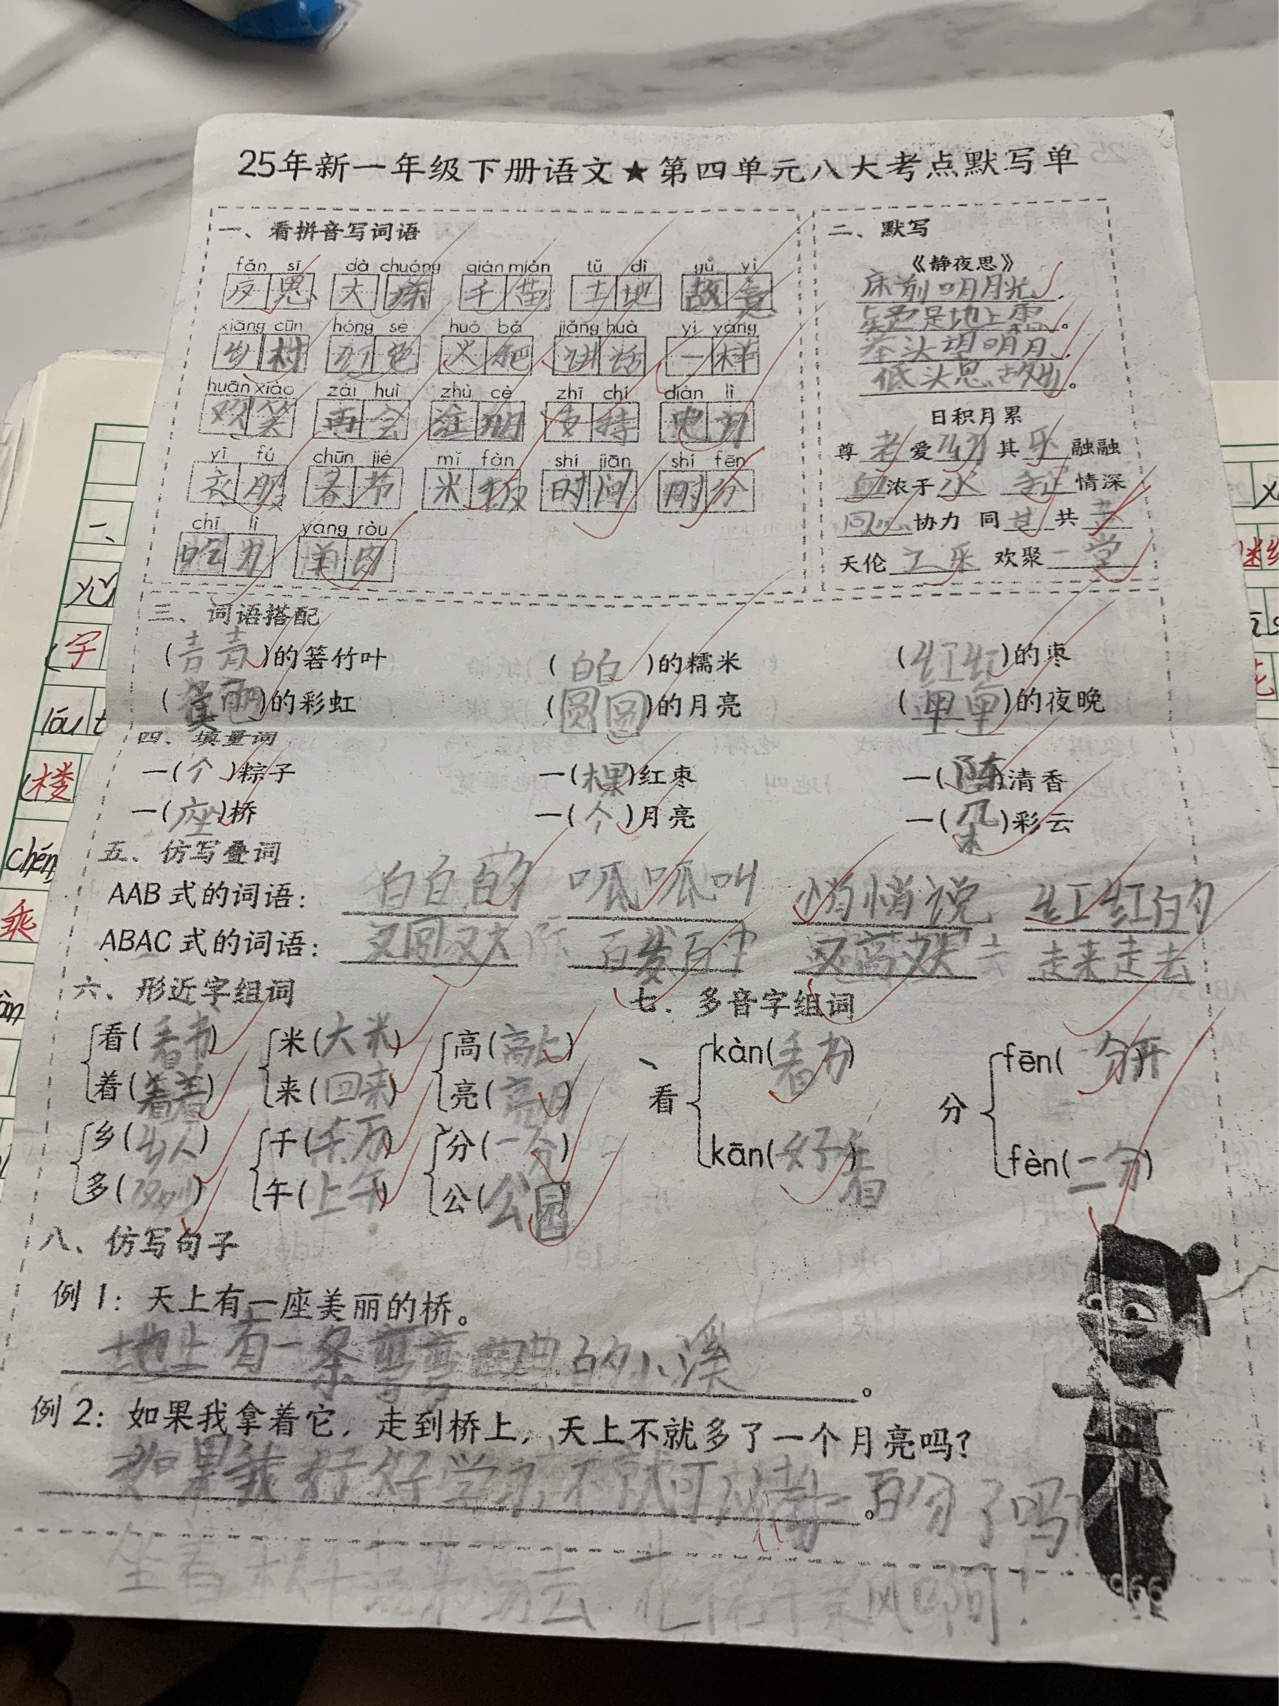 25年新一年级下册语文★第四单元八大考点默写单
一、看拼音写词语
fǎn sī dà chuáng qiān miàn tǔ dì gù yì
反思 大床 土地 故意
xiāng cūn hóng sè huǒ bǎ jiǎng huà yí yàng
乡村 红色 火把 讲话 一样
huān xiào zài huì zhù cè zhī chí diàn lì
欢笑 再会 注册 支持 电力
yī fú chūn jié mǐ fàn shí jiān shí fēn
衣服 春节 米饭 时间 时分
chī lì yáng ròu
吃力 羊肉
二、默写
《静夜思》
床前明月光,
疑是地上霜。
举头望明月,
低头思故乡。
日积月累
尊老爱幼 其乐融融
血浓于水 手足情深
同心协力 同甘共苦
天伦之乐 欢聚一堂
三、词语搭配
(青青)的箬竹叶 (白白)的糯米 (红红)的枣
(美丽)的彩虹 (圆圆)的月亮 (黑黑)的夜晚
四、填量词
一(个)粽子 一(棵)红枣 一(阵)清香
一(座)桥 一(个)月亮 一(朵)彩云
五、仿写叠词
AAB式的词语: 白白的 呱呱叫 悄悄说 红红的
ABAC式的词语: 又圆又大 百发百中 又高又大 走来走去
六、形近字组词
看(看书) 米(大米) 高(高上)
着(着着) 来(回来) 亮(亮月)
乡(乡人) 千(千万) 分(一分)
多(多少) 午(上午) 公(公园)
七、多音字组词
看 kàn(看书) kān(好看)
分 fēn(分开) fèn(二分)
八、仿写句子
例1:天上有一座美丽的桥。
地上有一条弯弯曲曲的小溪。
例2:如果我拿着它,走到桥上,天上不就多了一个月亮吗?
如果我好好学习,不就可以考一百分了吗?